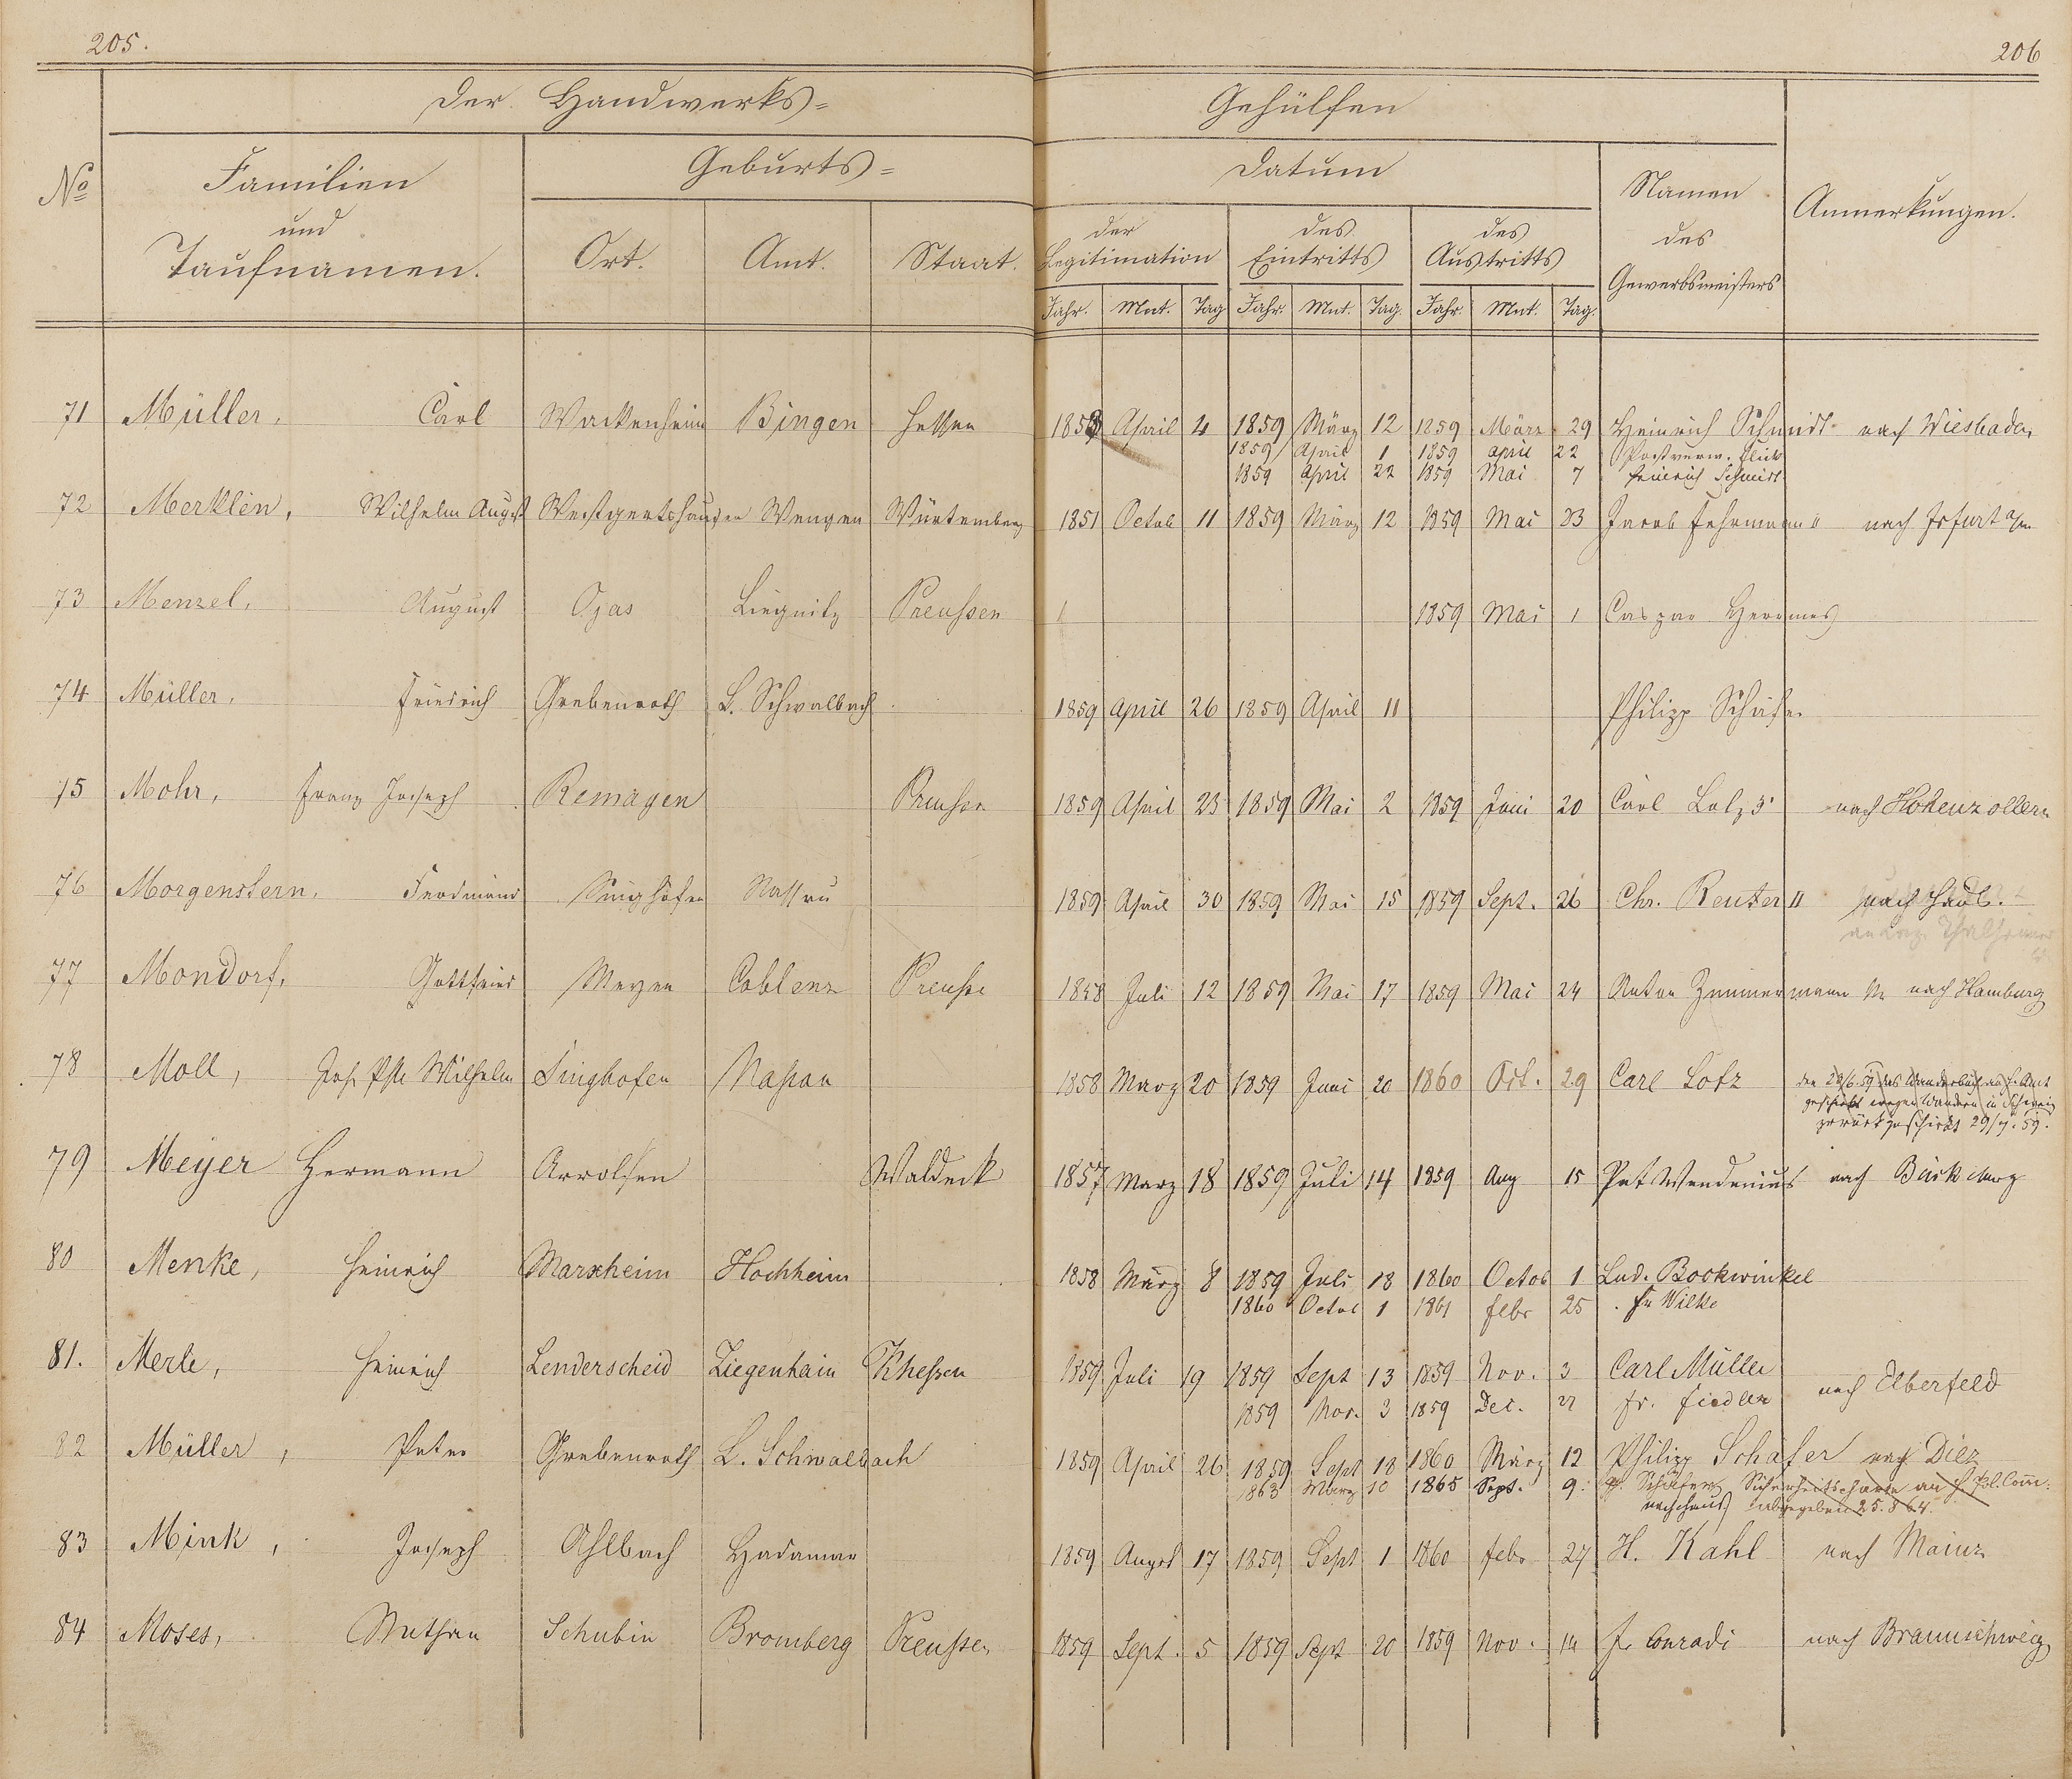 205.
206
Der Handwerks= Gehülfen
No
Familien und Taufnamen.
Geburts=
Ort. Amt. Staat.
Datum
der Legitimation
des Eintritts
des Austritts
Jahr. Mnt. Tag Jahr. Mnt. Tag. Jahr. Mnt. Tag.
Namen des Gewerbsmeisters
Anmerkungen.
71 Müller, Carl Wackenheim Bingen Hessen 1858 April 4 1859 März 12 1859 März 29 Heinrich Schmidt nach Wiesbaden
1859 April 1 1859 April 22 Postverw.
1859 April 22 1859 Mai 7 Heinrich Schmidt
72 Merklen, Wilhelm August Würtemberg 1851 Octob 11 1859 März 12 1859 Mai 23 Jacob Fehrmann nach
73 Menzel, August Ojas Liegnitz Preussen 1859 Mai 1 Caspar Hermes
74 Müller, Friedrich Grebenroth L. Schwalbach 1859 April 26 1859 April 11 Philipp Schäfer
75 Mohr, Franz Joseph Remagen Preussen 1859 April 23 1859 Mai 2 1859 Juni 20 Carl Lotz nach Hohenzollern
76 Morgenstern, Ferdinand Singhofen Nassau 1859 April 30 1859 Mai 15 1859 Sept. 26 Chr. Reuter II nach
77 Mondorf, Gottfried Mayen Coblenz Preusse 1858 Juli 12 1859 Mai 17 1859 Mai 24 Anton Zimmermann nach Hamburg
78 Moll, Wilhelm Singhofen Nassau 1858 März 20 1859 Juni 20 1860 Oct. 29 Carl Lotz den 29/6 59 das Wanderbuch an H. Amt
geschickt wegen Wandern in Schweiz
zurückgeschickt 29/7. 59.
79 Meyer Hermann Arrolsen Waldeck 1857 März 18 1859 Juli 14 1859 Aug 15 Pet Wendenius nach Bückeburg
80 Menke, Heinrich Marxheim Hochheim 1858 März 8 1859 Juli 18 1860 Octob 1 Lud. Bockwinkel
1860 Octob 1 1861 Febr 25 Fr Wilke
81. Merle, Heinrich Lenderscheid Ziegenhain KHessen 1859 Juli 19 1859 Sept 13 1859 Nov. 3 Carl Müller nach Elberfeld
1859 Nov. 3 1859 Dec. 27 Fr. Fiedler
82 Müller, Peter Grebenroth L. Schwalbach 1859 April 26 1859 Sept 18 1860 März 12 Philipp Schäfer nach Diez
1863 März 10 1865 Sept. 9. Schäfer Sicherheitscharte an H. Pol. Com:
nach Haus abgegeben 25. 8 64.
83 Mink, Joseph Ahlbach Hadamar 1859 August 17 1859 Sept 1 1860 Febr 27 H. Kahl nach Mainz
84 Moses, Nathan Schubin Bromberg Preussen 1859 Sept. 5 1859 Sept 20 1859 Nov. 14 Fr Conradi nach Braunschweig